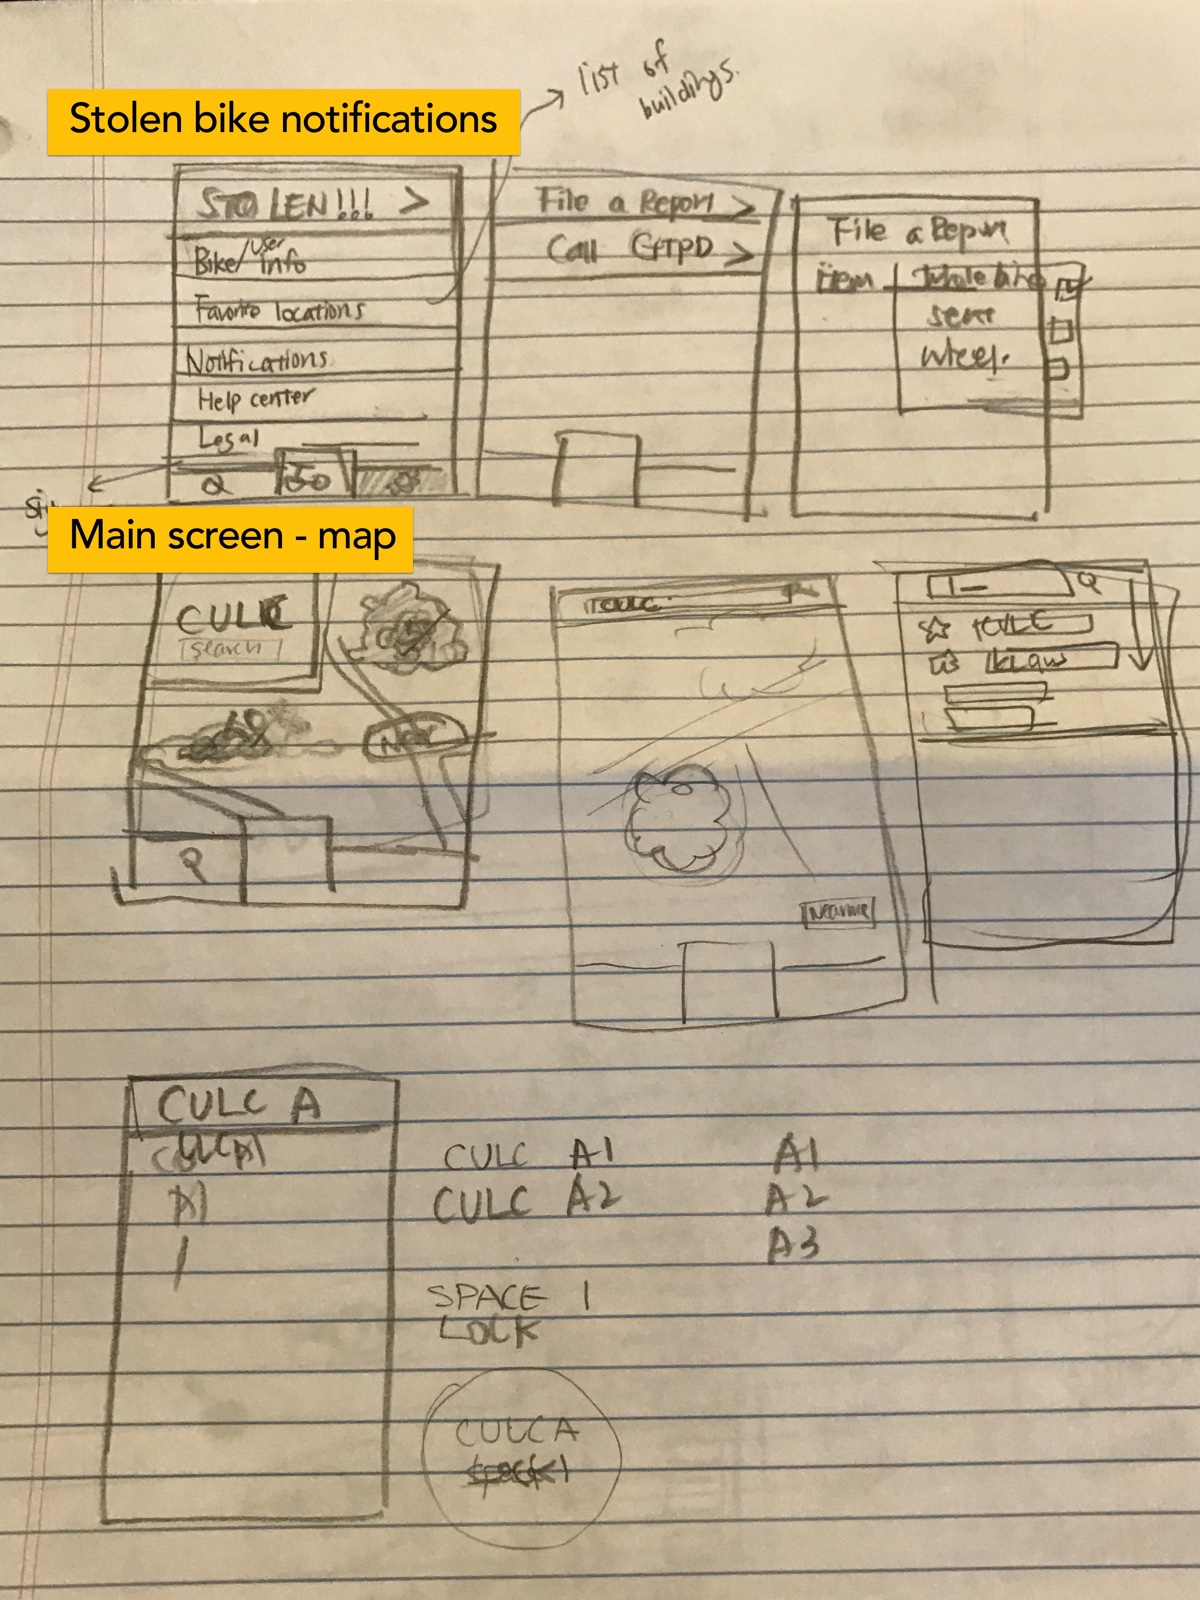 list of
buildings.
Stolen bike notifications
STOLEN!!! >
Bike/User info
Favorite locations
Notifications
Help center
Legal
Q
File a Report >
Call GTPD >
File a Report
Item
Whole bike
seat
wheel.
Main screen - map
CULC
Search
Q
CULC
Near me
Q
CULC
Klaus
CULC A
CULC A1
A1
1
CULC A1
CULC A2
A1
A2
A3
SPACE 1
LOCK
CULC A